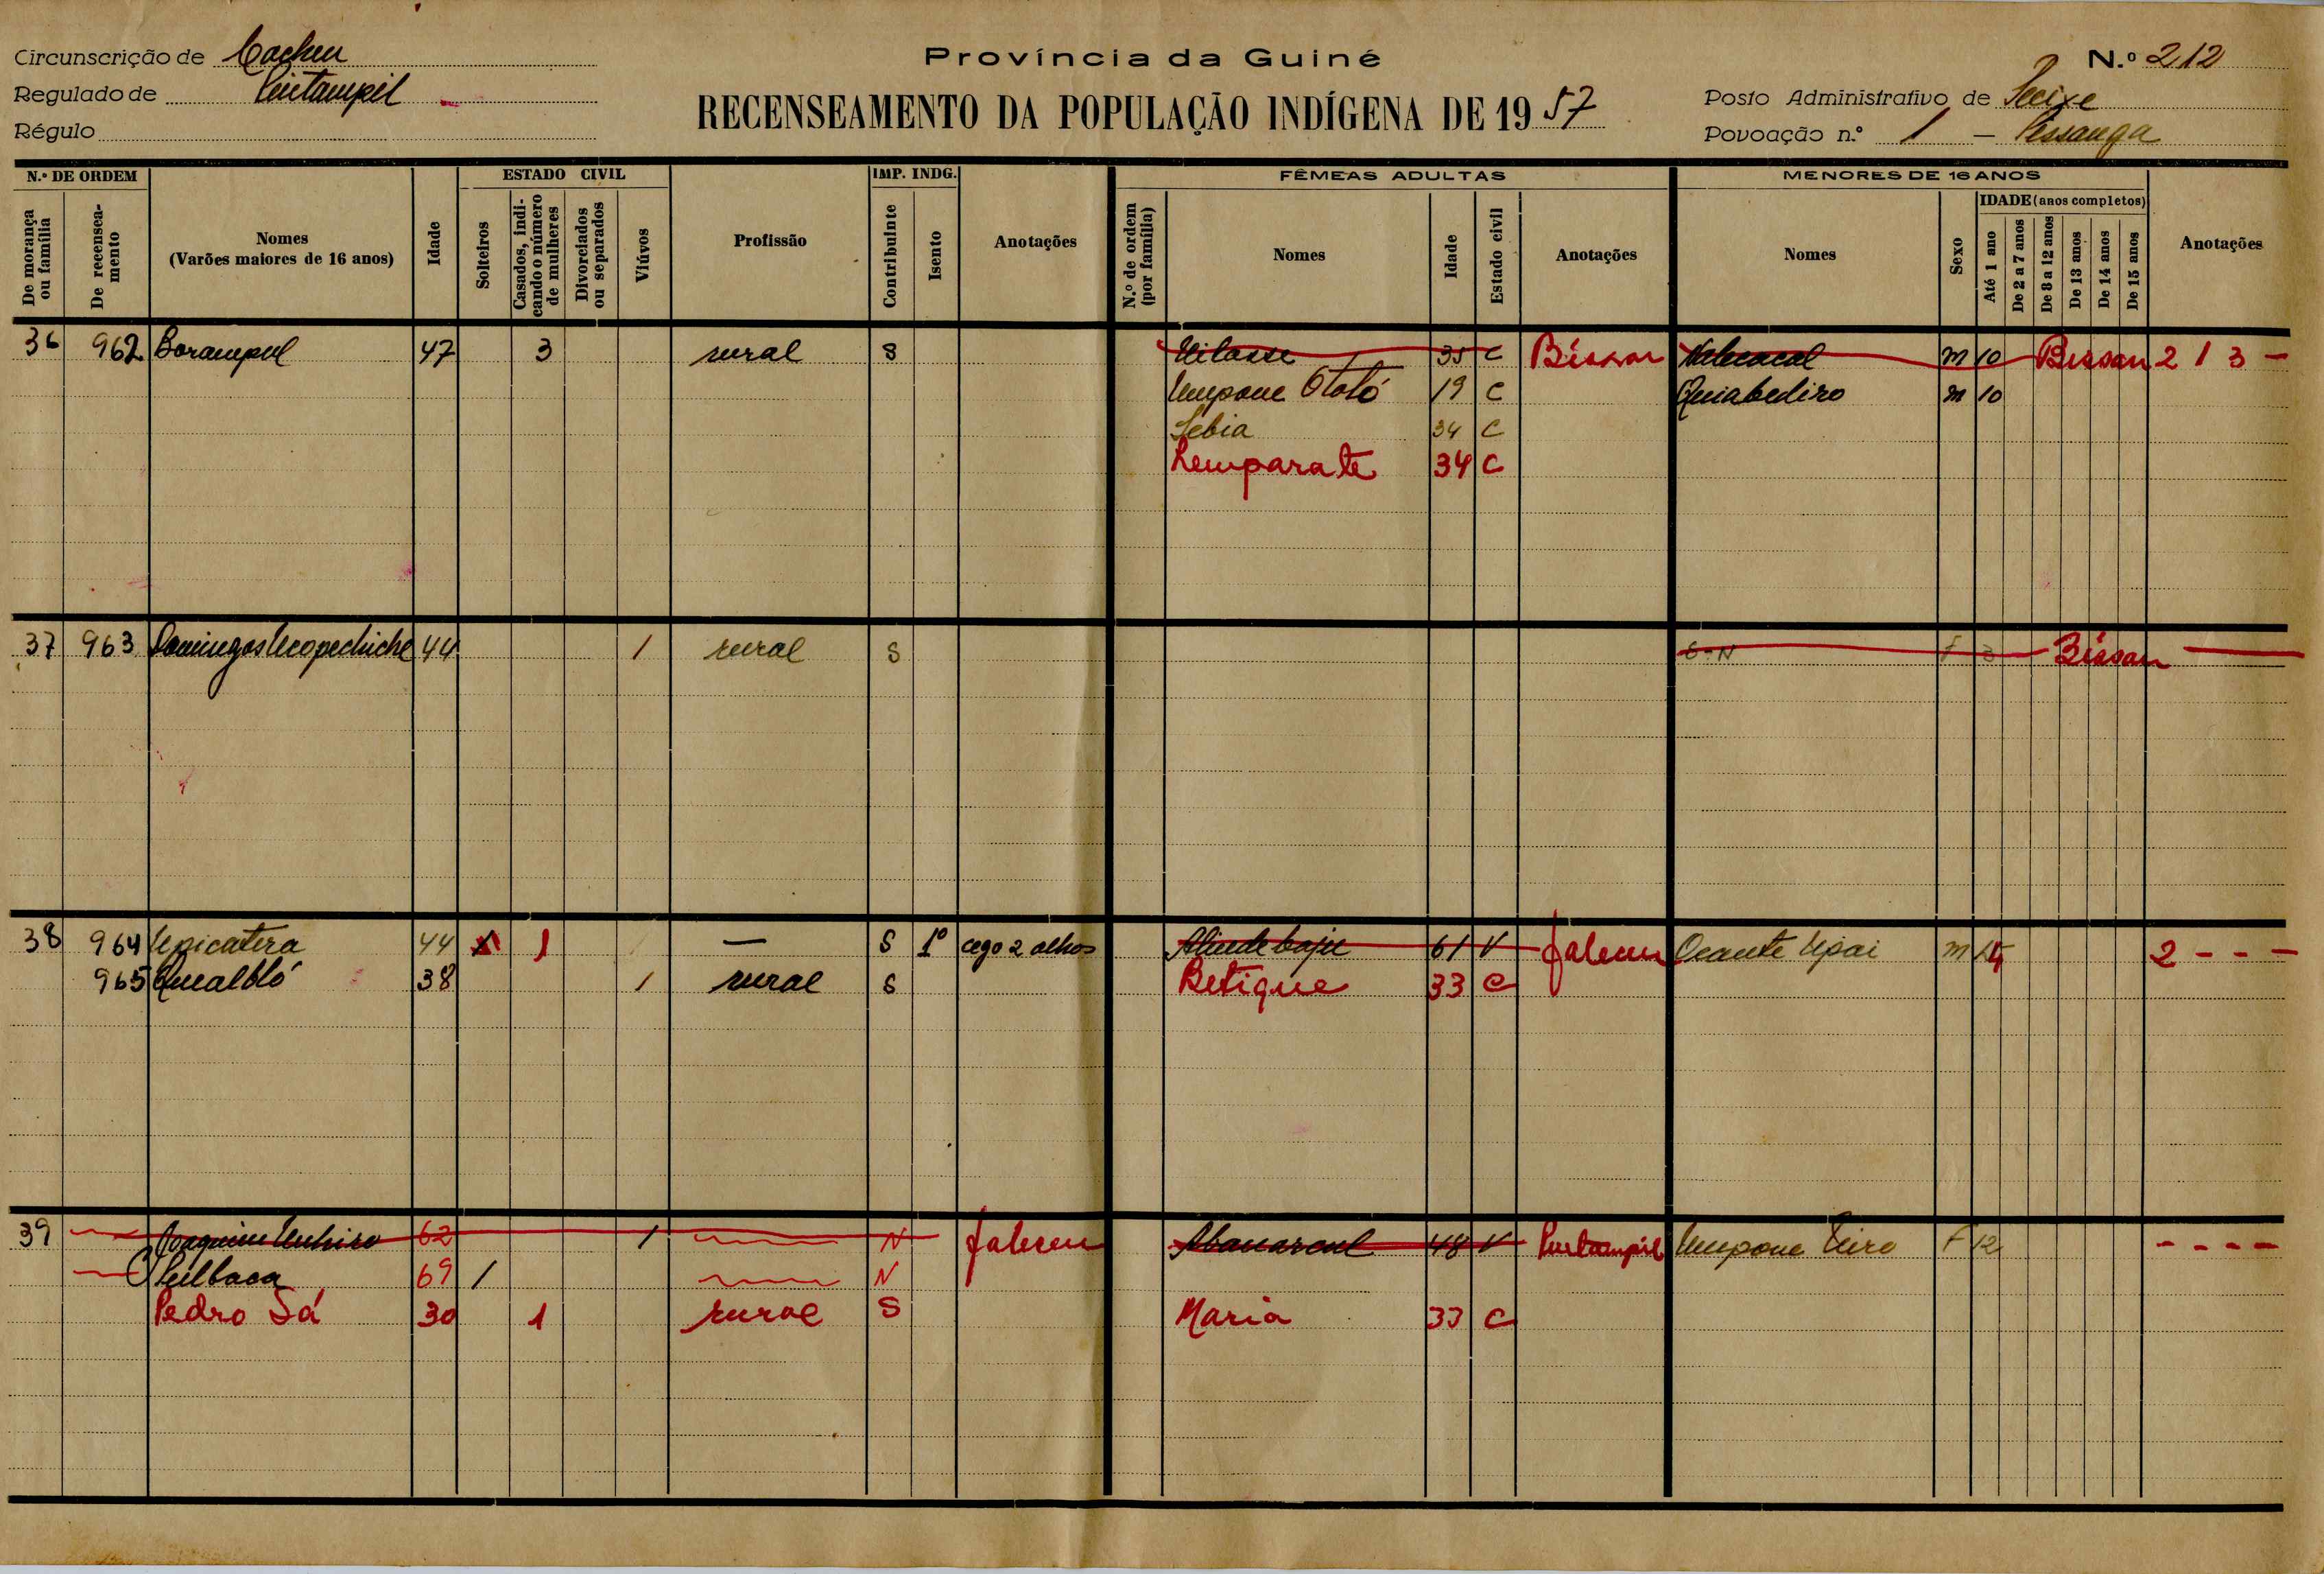 Circunscrição de Cacheu
Regulado de
Régulo
Província da Guiné
RECENSEAMENTO DA POPULAÇÃO INDÍGENA DE 19 57
N.º 212
Posto Administrativo de
Povoação n.º 1 – Pessanga
N.º DE ORDEM
De morança ou família
De recenseamento
Nomes
(Varões maiores de 16 anos)
Idade
ESTADO CIVIL
Solteiros
Casados, indicando o número de mulheres
Divorciados ou separados
Viúvos
Profissão
IMP. INDG.
Contribuinte
Isento
Anotações
FÊMEAS ADULTAS
N.º de ordem (por família)
Nomes
Idade
Estado civil
Anotações
MENORES DE 16 ANOS
Nomes
Sexo
IDADE (anos completos)
Até 1 ano
De 2 a 7 anos
De 8 a 12 anos
De 13 anos
De 14 anos
De 15 anos
Anotações
36 962 Borampul 47 3 rural S 35 C Bissau m 10 Bissau 2 1 3 -
Umpone Ototó 19 C Quiabediro m 10
Sebia 34 C
Remparate 34 C
37 963 Domingos 44 1 rural S S-N F 3 Bissau
38 964 Upicatera 44 1 — S 1º cego 2 olhos 61 V faleceu Ocante Upai m 2 - - -
965 38 1 rural S Betique 33 C
39 Joaquim 62 1 N faleceu 48 V Umpone F 12 - - - -
69 / N
Pedro Sá 30 1 rural S Maria 33 C